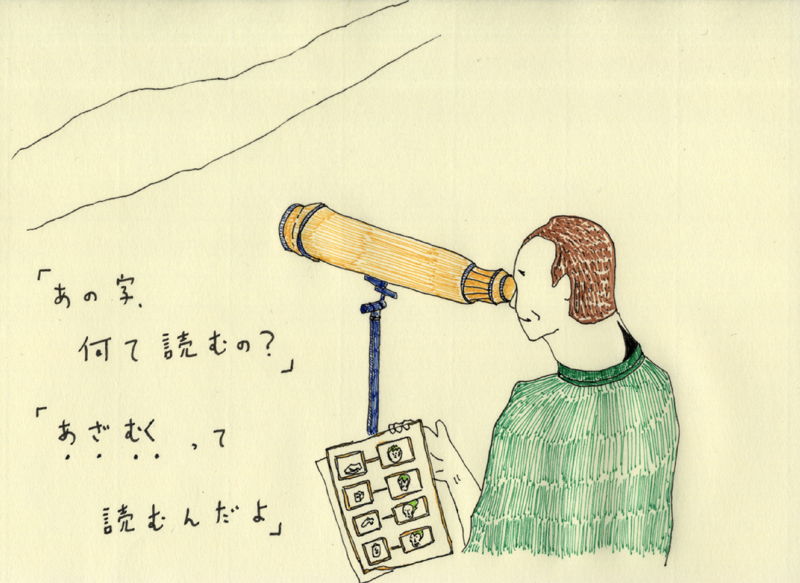 「あの字、
何て読むの？」
「あざむくって
読むんだよ」